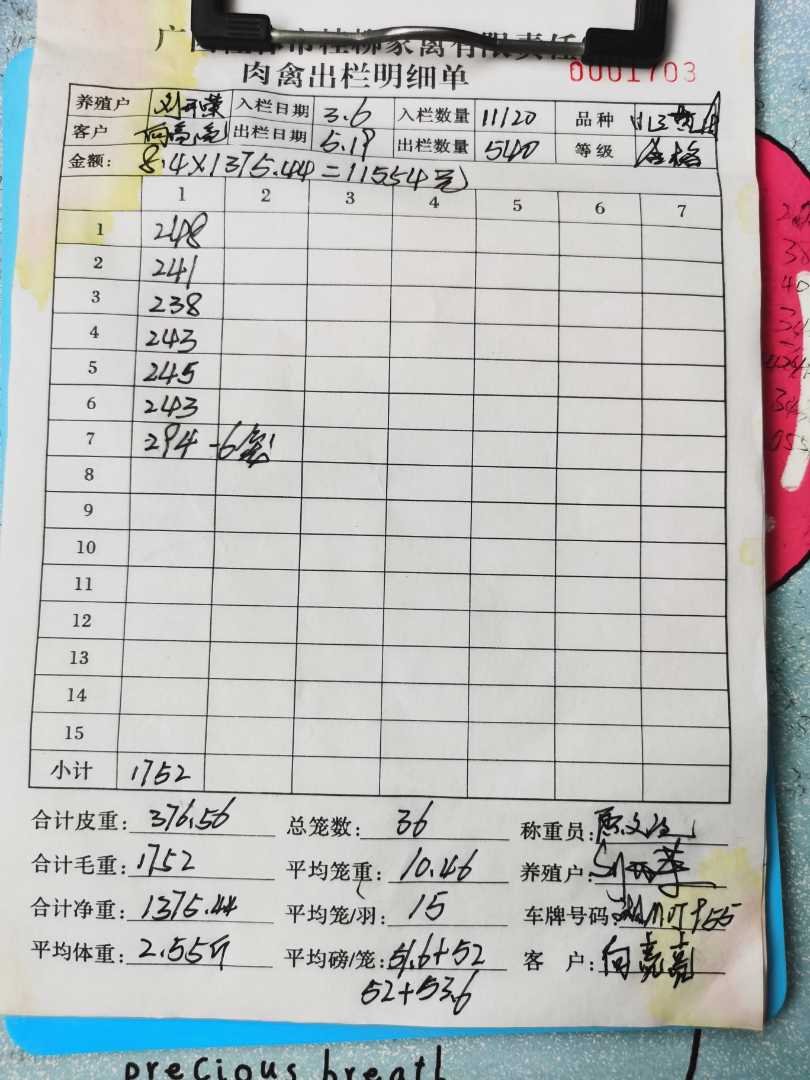 肉禽出栏明细单
0001703
养殖户 入栏日期 3.6 入栏数量 11120 品种
客户 向亮亮 出栏日期 5.19 出栏数量 540 等级 合格
金额: 8.4×1375.44=11554元
1 2 3 4 5 6 7
1 248
2 241
3 238
4 243
5 245
6 243
7 294 -6笼
8
9
10
11
12
13
14
15
小计 1752
合计皮重: 376.56 总笼数: 36 称重员:
合计毛重: 1752 平均笼重: 10.46 养殖户:
合计净重: 1375.44 平均笼/羽: 15 车牌号码:
平均体重: 2.55斤 平均磅/笼: 51.6+52 客 户: 向亮亮
52+53.6
precious breath